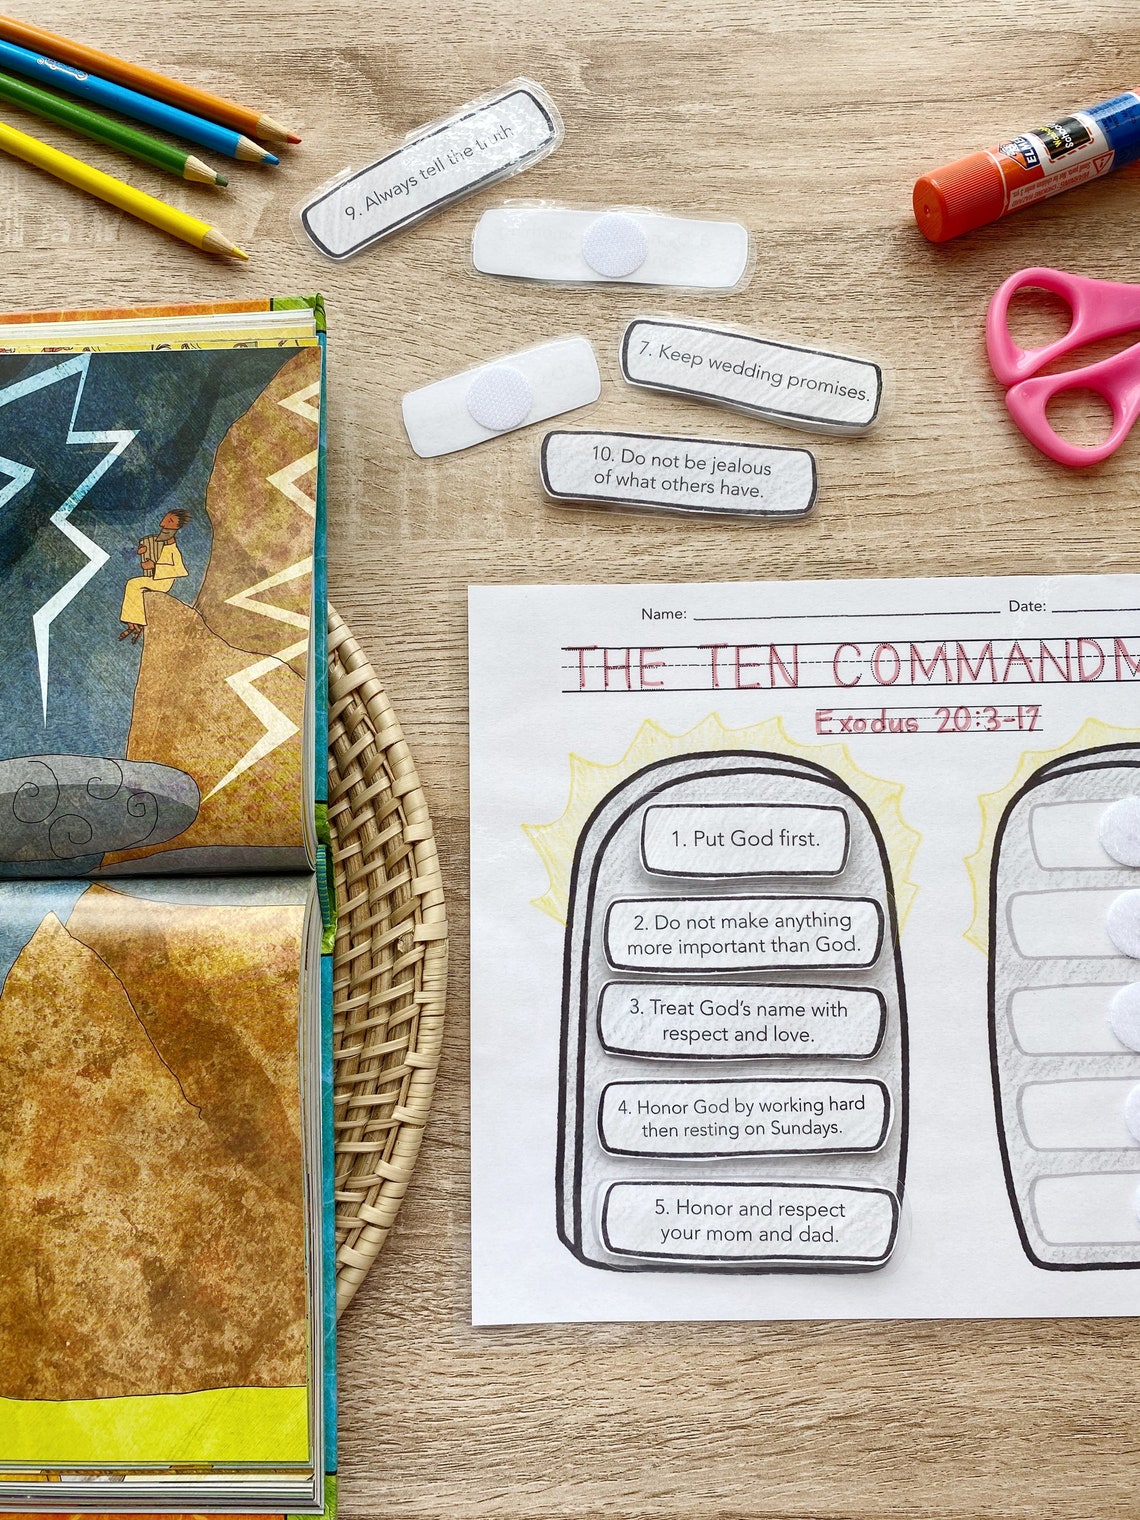 9. Always tell the truth
7. Keep wedding promises.
10. Do not be jealous
of what others have.
ELMER'S
School
Name:
Date:
THE TEN COMMANDM
Exodus 20:3-17
1. Put God first.
2. Do not make anything
more important than God.
3. Treat God's name with
respect and love.
4. Honor God by working hard
then resting on Sundays.
5. Honor and respect
your mom and dad.